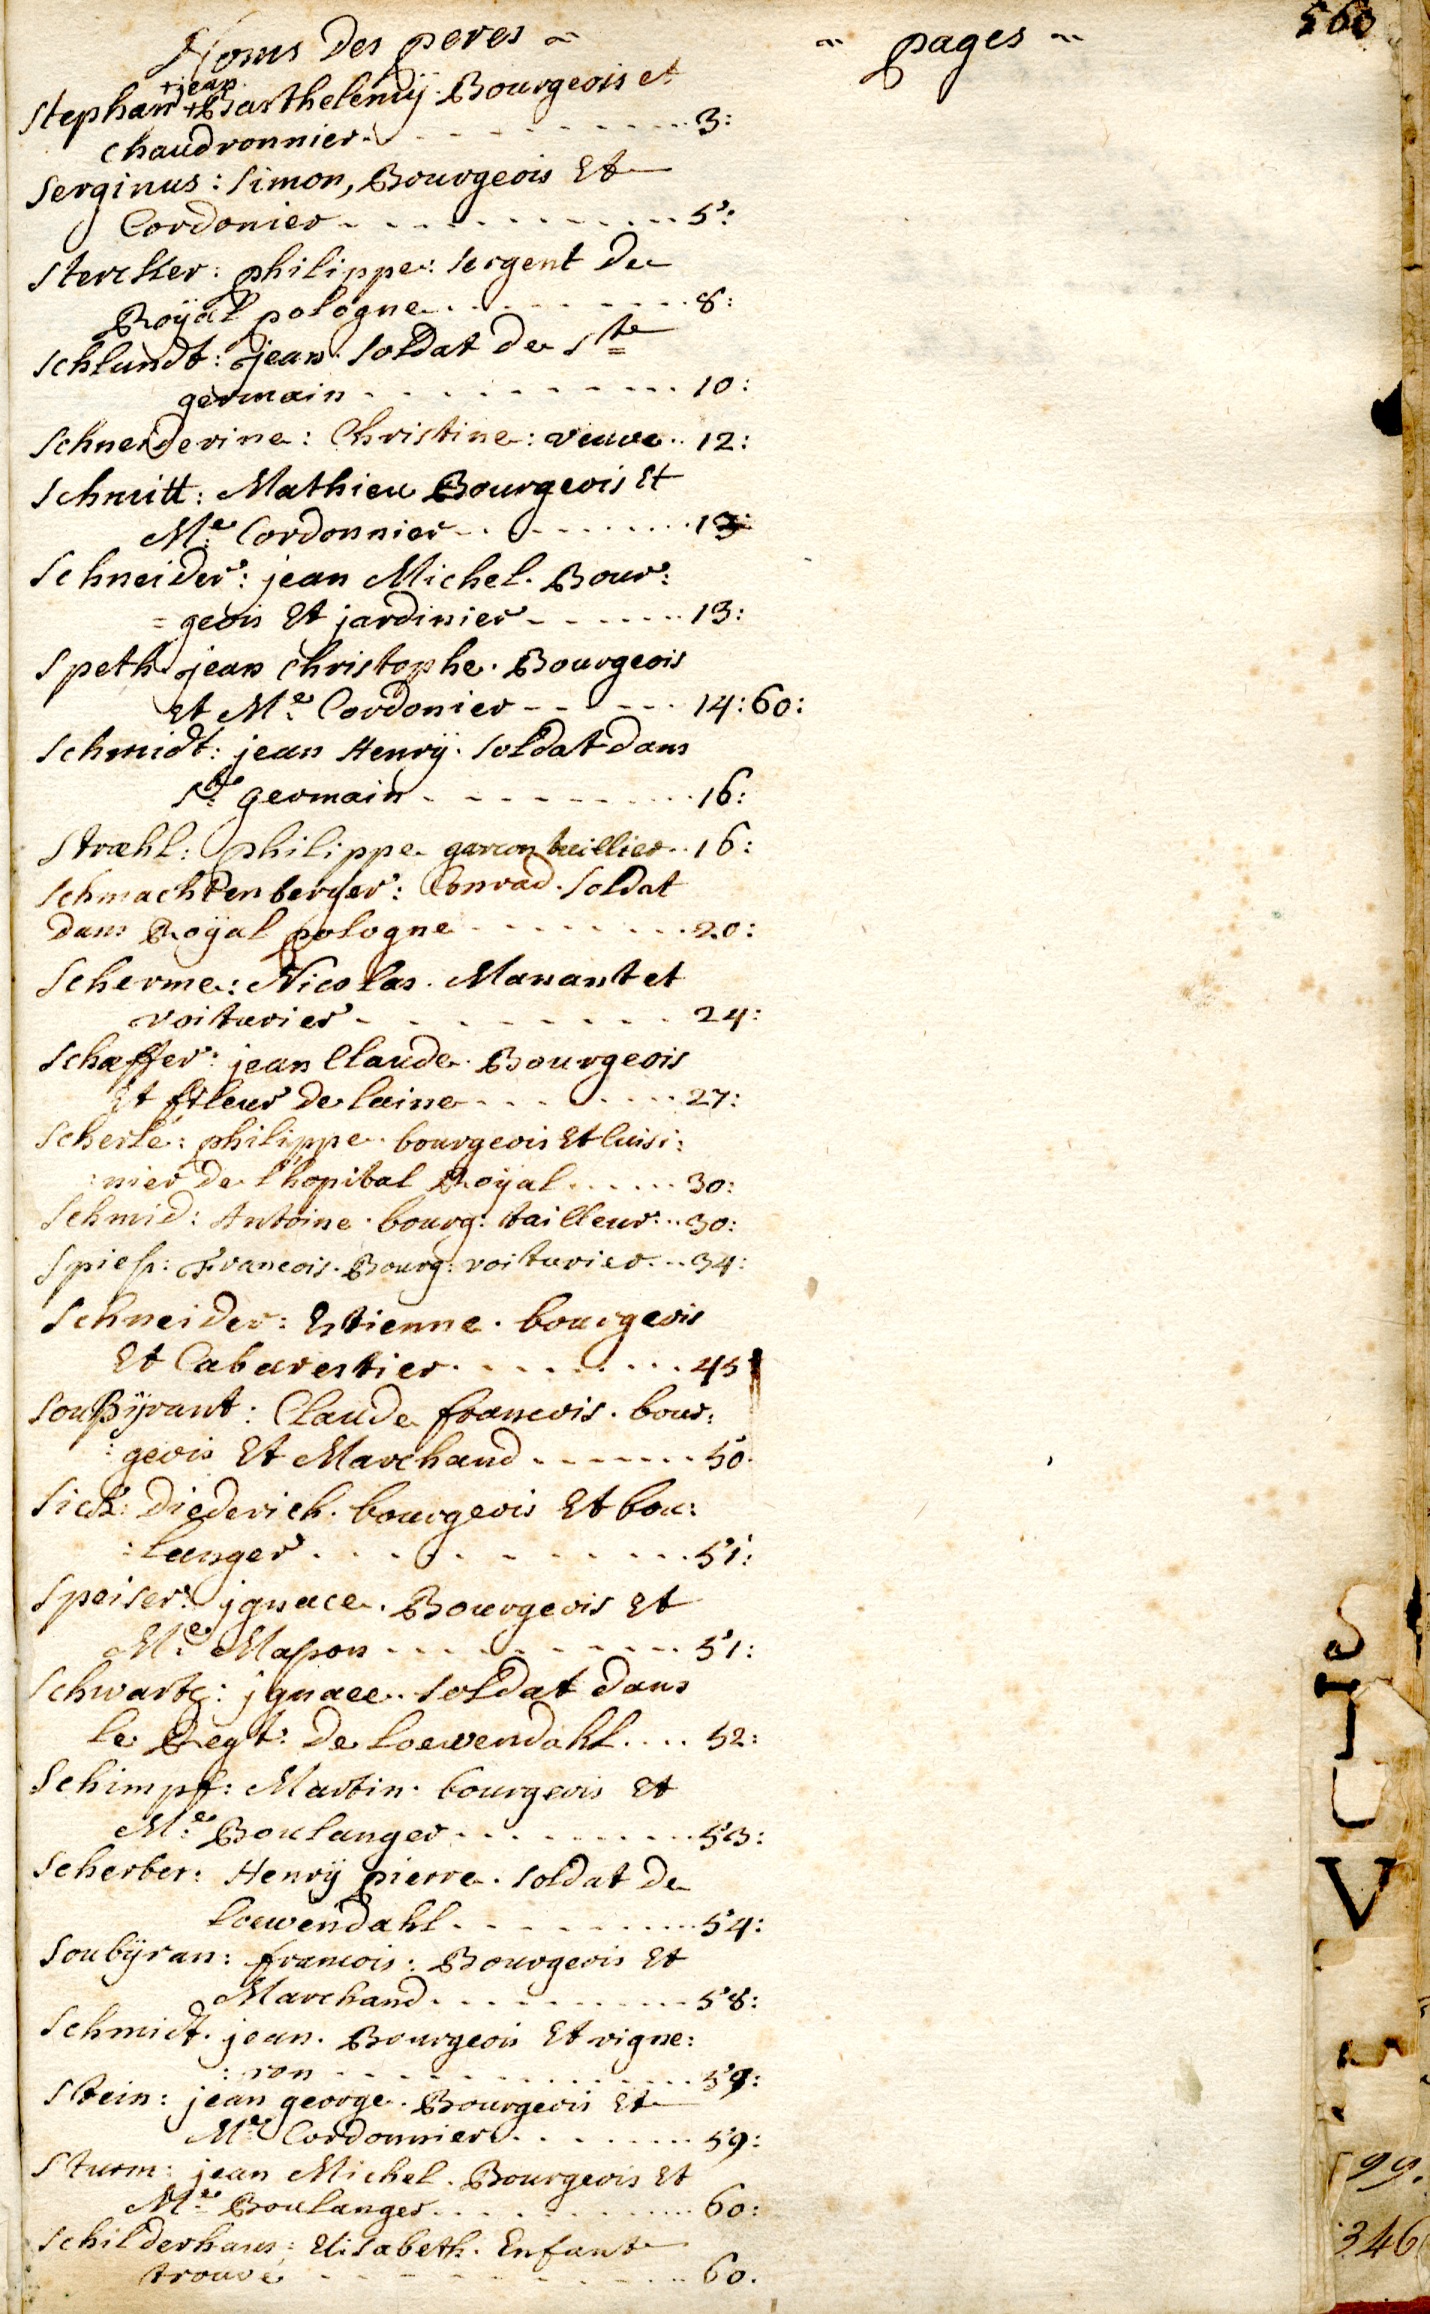 Noms des peres ~ ~ pages ~ 560
+jean
Stephan +Barthelemÿ. Bourgeois et
chaudronnier. - - - - - - - - - 3:
Serginus: Simon, Bourgeois Et
Cordonier - - - - - - - - - - - 5:
Stercker: philippe: sergent de
Roÿal pologne. - - - - - - - - 8:
Schlundt: jean. soldat de Ste
germain - - - - - - - - - - 10:
Schneiderine: Christine: veuve.. 12:
Schmitt: Mathieu Bourgeois Et
Me Cordonnier - - - - - - - - 13
Schneider: jean Michel. Bour:
= geois Et jardinier - - - - - - 13:
Speth. jean christophe. Bourgeois
et Me. Cordonier - - - - - - 14:60:
Schmidt: jean Henrÿ. soldat dans
St. germain - - - - - - - - - 16:
Stræhl: philippe garcon taillier.. 16:
Schmachtenberger: Conrad. soldat
dans Roÿal pologne - - - - - - - 20:
Scherme: Nicolas. Manant et
voiturier - - - - - - - - - 24:
Schæffer: jean Claude. Bourgeois
Et fileur de laine - - - - - - - 27:
Scherlé: philippe. bourgeois Et Cuisi:
:nier de l'hopital Roÿal. . . . . . 30:
Schmid: Antoine. bourg: tailleur... 30:
Spiess: Francois. Bourg: voiturier... 34:
Schneider: Estienne. bourgeois
Et Cabarestier. . . . . . . . . 45
Soubÿrant: Claude francois. bour:
:geois Et Marchand . - - - - - - 50.
Sick: Diederich. bourgeois Et bou:
:langer . . . . . . . . . . . . 51:
Speiser: jgnace. Bourgeois Et
Me. Masson - - - - - - - - - - 51:
Schwartz: jgnace.. soldat dans
le Regt. de Loewendahl. . . . 52:
Schimpf: Martin. bourgeois Et
Me. Boulanger. . . . . . . . . . 53:
Scherber: Henrÿ pierre. soldat de
Loewendahl. - - - - - - - - - 54:
Soubÿran: francois: Bourgeois Et
Marchand. . . . . . . . . . . 58:
Schmidt. jean. Bourgeois Et vigne:
:ron - - - - - - - - - - - - - 59:
Stein: jean george. Bourgeois Et
Me Cordonnier. . . . . . . . 59:
Sturm: jean Michel. Bourgeois Et
Me. Boulanger. . . . . . . . . . . 60:
Schilderhaus: Elisabeth. Enfant
trouvé - - - - - - - - - - - - - 60.
S
T
U
V
99.
346